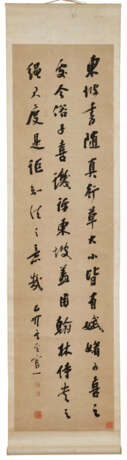 東坡書隨真行草大小皆有嫵媚可喜之
處今俗子喜譏評東坡蓋用翰林侍書之
繩尺度是詎知法之意哉 乙卯